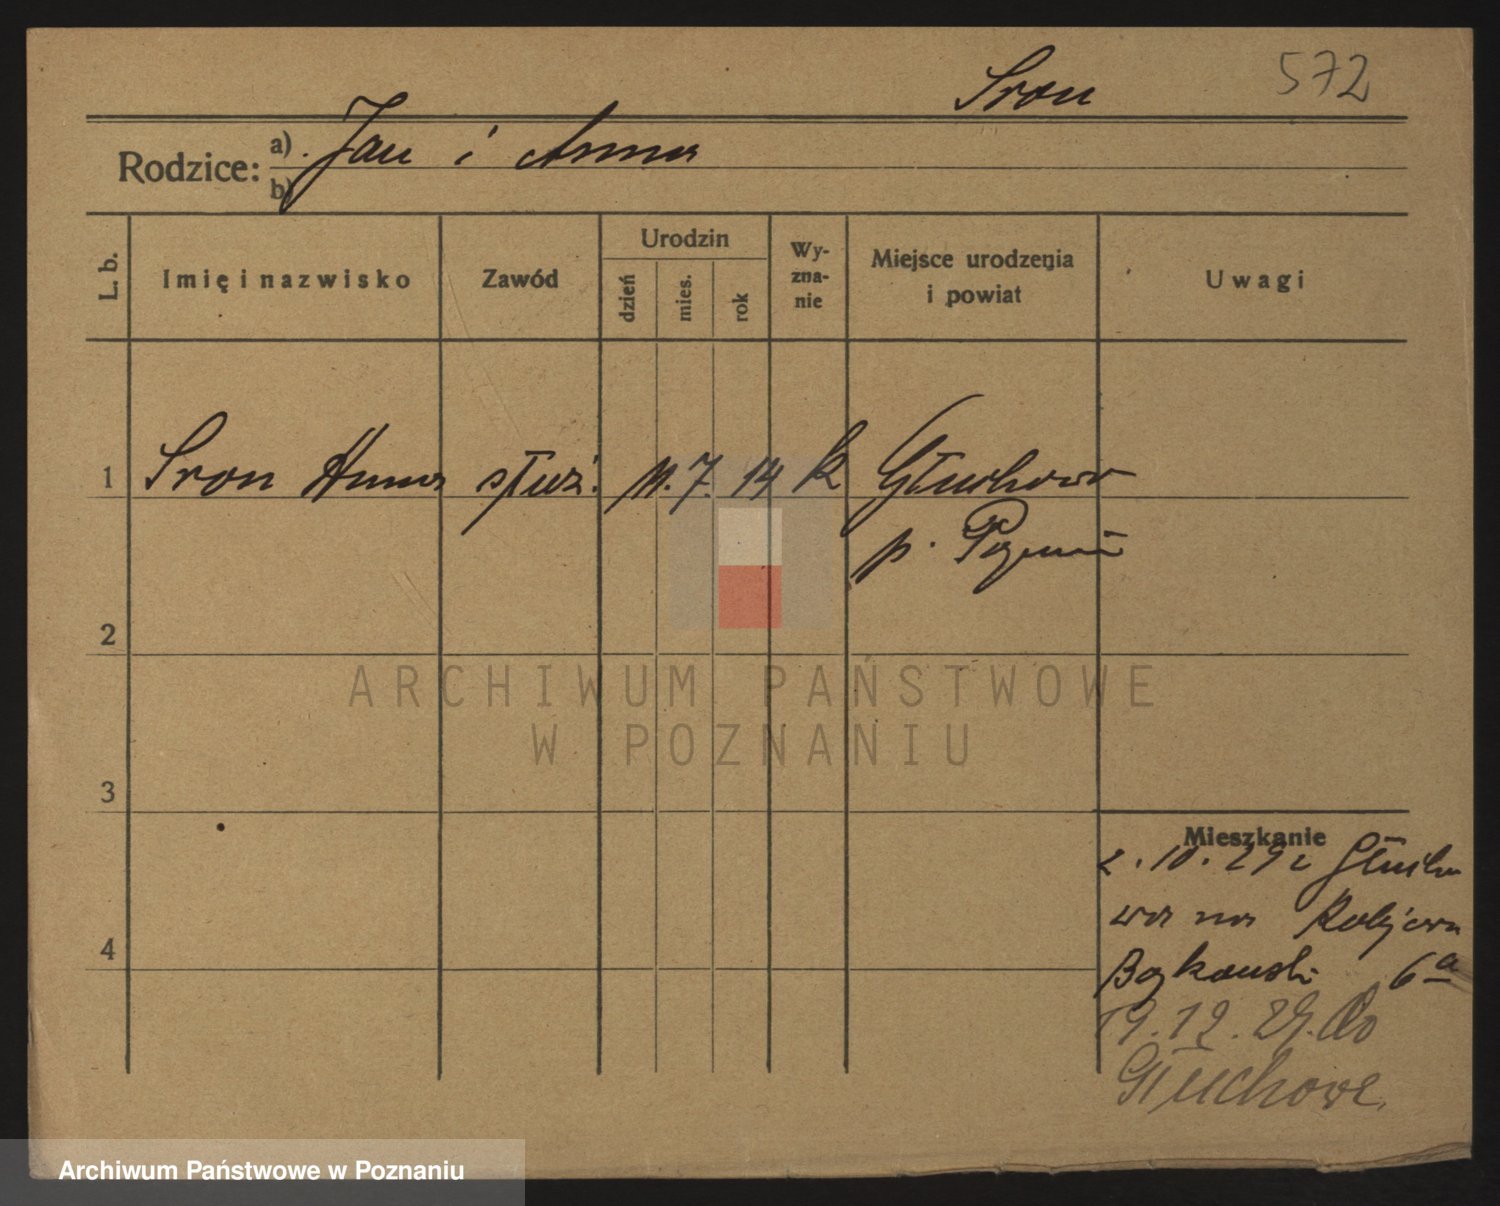 Sron 572
Rodzice: a) Jan i Anna
b)
L. b. Imię i nazwisko Zawód Urodzin dzień mies. rok Wy-zna-nie Miejsce urodzenia i powiat Uwagi
1 Sron Anna służ. 11. 7. 14 k Głuchowo
p. Poznań
2
ARCHIWUM PAŃSTWOWE
W POZNANIU
3
Mieszkanie
2.10.29 z Głucho
wa na
6a
4
19.12.29. do
Głuchowa.
Archiwum Państwowe w Poznaniu